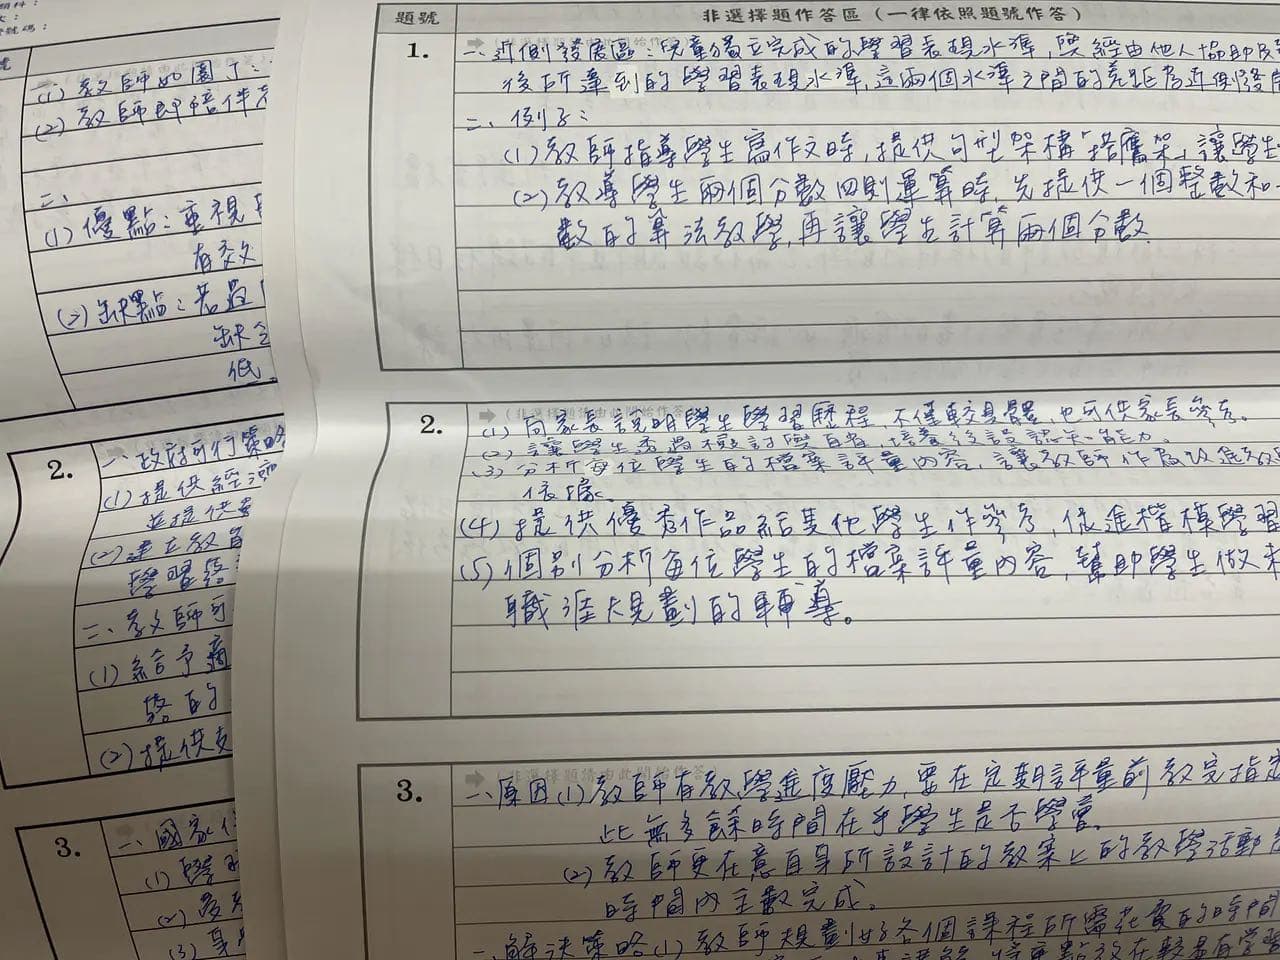 題號
非選擇題作答區（一律依照題號作答）
1.
一、近側發展區：兒童獨立完成的學習表現水準，與經由他人協助
後所達到的學習表現水準，這兩個水準之間的差距為近側發展
二、例子：
(1)教師指導學生寫作文時，提供句型架構「搭鷹架」，讓學生
(2)教導學生兩個分數四則運算時，先提供一個整數和一
數的算法教學，再讓學生計算兩個分數
2.
(1) 向家長說明學生學習歷程，不僅較具體，也可供家長參考。
(2) 讓學生透過檢討學習，培養後設認知能力。
(3) 分析每位學生的檔案評量內容，讓教師作為改進教
依據。
(4) 提供優秀作品給其他學生作參考，促進楷模學習
(5) 個別分析每位學生的檔案評量內容，幫助學生做未
職涯規劃的輔導。
3.
一、原因(1)教師有教學進度壓力，要在定期評量前教完指定
此無多餘時間在乎學生是否學會。
(2)教師更在意自身所設計的教案上的教學活動
時間內全數完成。
二、解決策略(1)教師規劃好各個課程所需花費的時間
將重點放在較
號碼：
(1) 教師如園丁：
(2) 教師即陪伴者
二、
(1) 優點：重視
有交
(2) 缺點：若過
缺乏
低
2.
一、政府可行策略
(1) 提供經濟
並提供
(2) 建立教
學習
二、教師可
(1) 給予
的
(2) 提供支
3.
一、國家
(1) 學
(2)
(3)